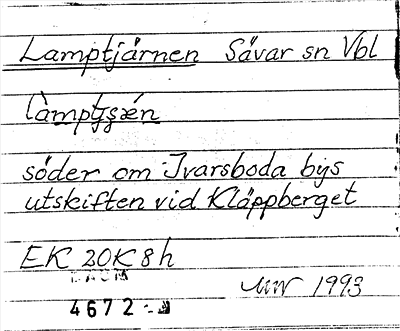 Lamptjärnen Sävar sn Vbl
làmptjæ̀n
söder om Ivarsboda bys
utskiften vid Kläppberget
EK 20K 8h
MW 1993
4672